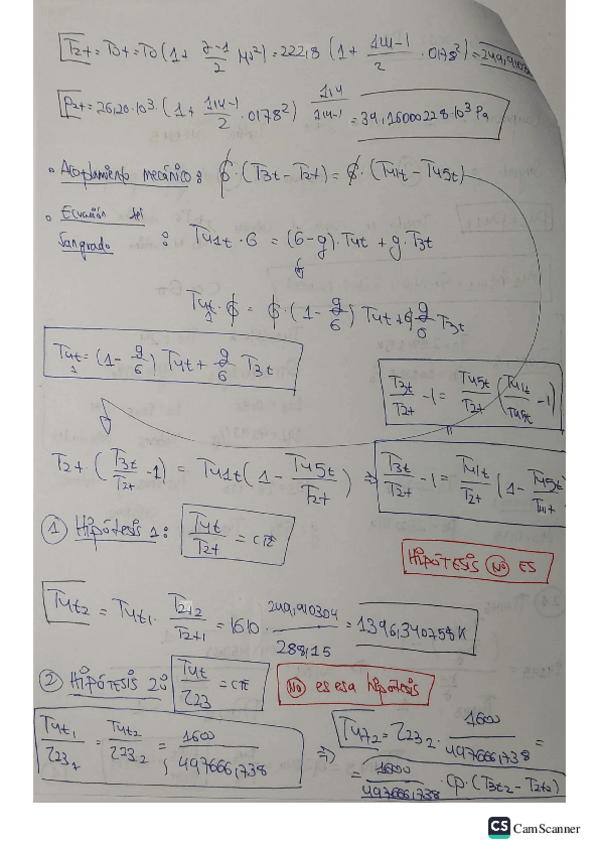 T2t = T0t = T0 (1 + γ-1/2 M0²) = 222,8 (1 + 1,4-1/2 · 0,78²) = 249,9103
P2t = 26,20·10³ · (1 + 1,4-1/2 · 0,78²)^1,4/1,4-1 = 39,16000228·10³ Pa
• Acoplamiento mecánico: G · (T3t - T2t) = G · (T41t - T45t)
• Ecuación del Sangrado : T41t · G = (G-g) · T4t + g · T3t
T41t · G = G · (1 - g/G) T4t + G g/G T3t
T41t = (1 - g/G) T4t + g/G T3t
T3t/T2t - 1 = T45t/T2t (T41t/T45t - 1)
T2t (T3t/T2t - 1) = T41t (1 - T45t/T2t) ⇒ T3t/T2t - 1 = T41t/T2t (1 - T45t/T41t
① Hipótesis 1: T4t/T2t = cte
HIPÓTESIS NO ES
T4t2 = T4t1 · T2t2/T2t1 = 1610 · 249,910304/288,15 = 1396,340758 K
② HIPÓTESIS 2: T4t/τ23 = cte
NO es esa hipótesis
T4t1/τ23 1 = T4t2/τ23 2 = 1600/497666,738 ⇒ T4t2 = τ23 2 · 1600/497666,738 =
= 1600/497666,738 · Cp · (T3t2 - T2t2)
CS CamScanner